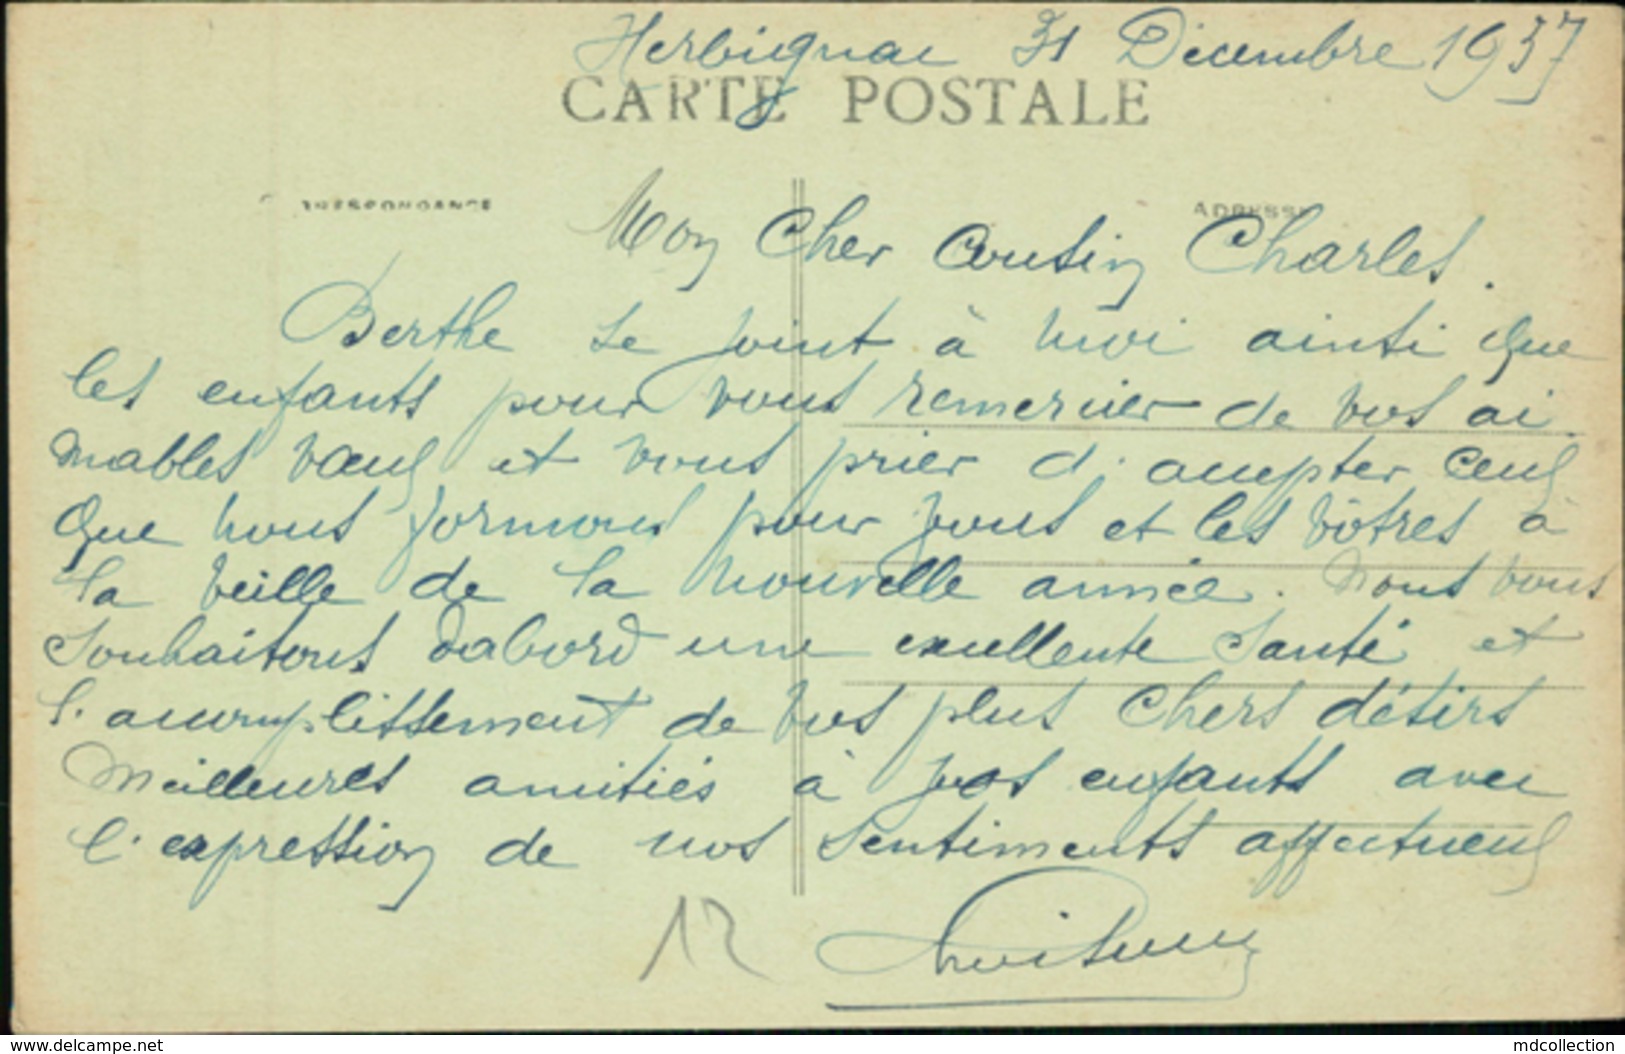 Herbignac 31 Décembre 1937
CARTE POSTALE
RRESPONDANCE
ADRESSE
Mon Cher Cousin Charles.
Berthe se joint à moi ainsi que
les enfants pour vous remercier de vos ai
mables vœux et vous prier d'accepter ceux
que nous formons pour vous et les vôtres à
la veille de la nouvelle année. Nous vous
souhaitons dabord une excellente santé et
l'accomplissement de vos plus chers désirs
Meilleures amitiés à vos enfants avec
l'expression de nos sentiments affectueux
12
www.delcampe.net
mdcollection